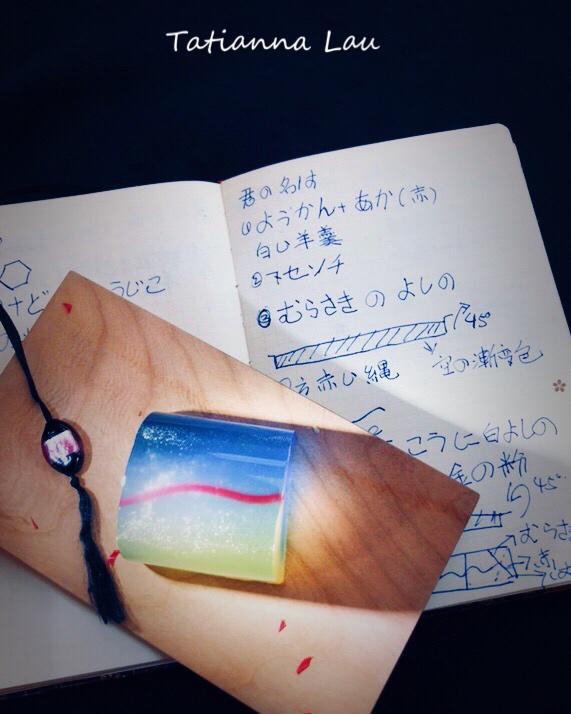 Tatianna Lau
君の名は
①ようかん+あか(赤)
白い羊羹
②下センチ
③むらさき の よしの
45°
赤い縄
空の漸变色
うじこ
けど
こうじに白よしの
金の粉
45°
むらさ